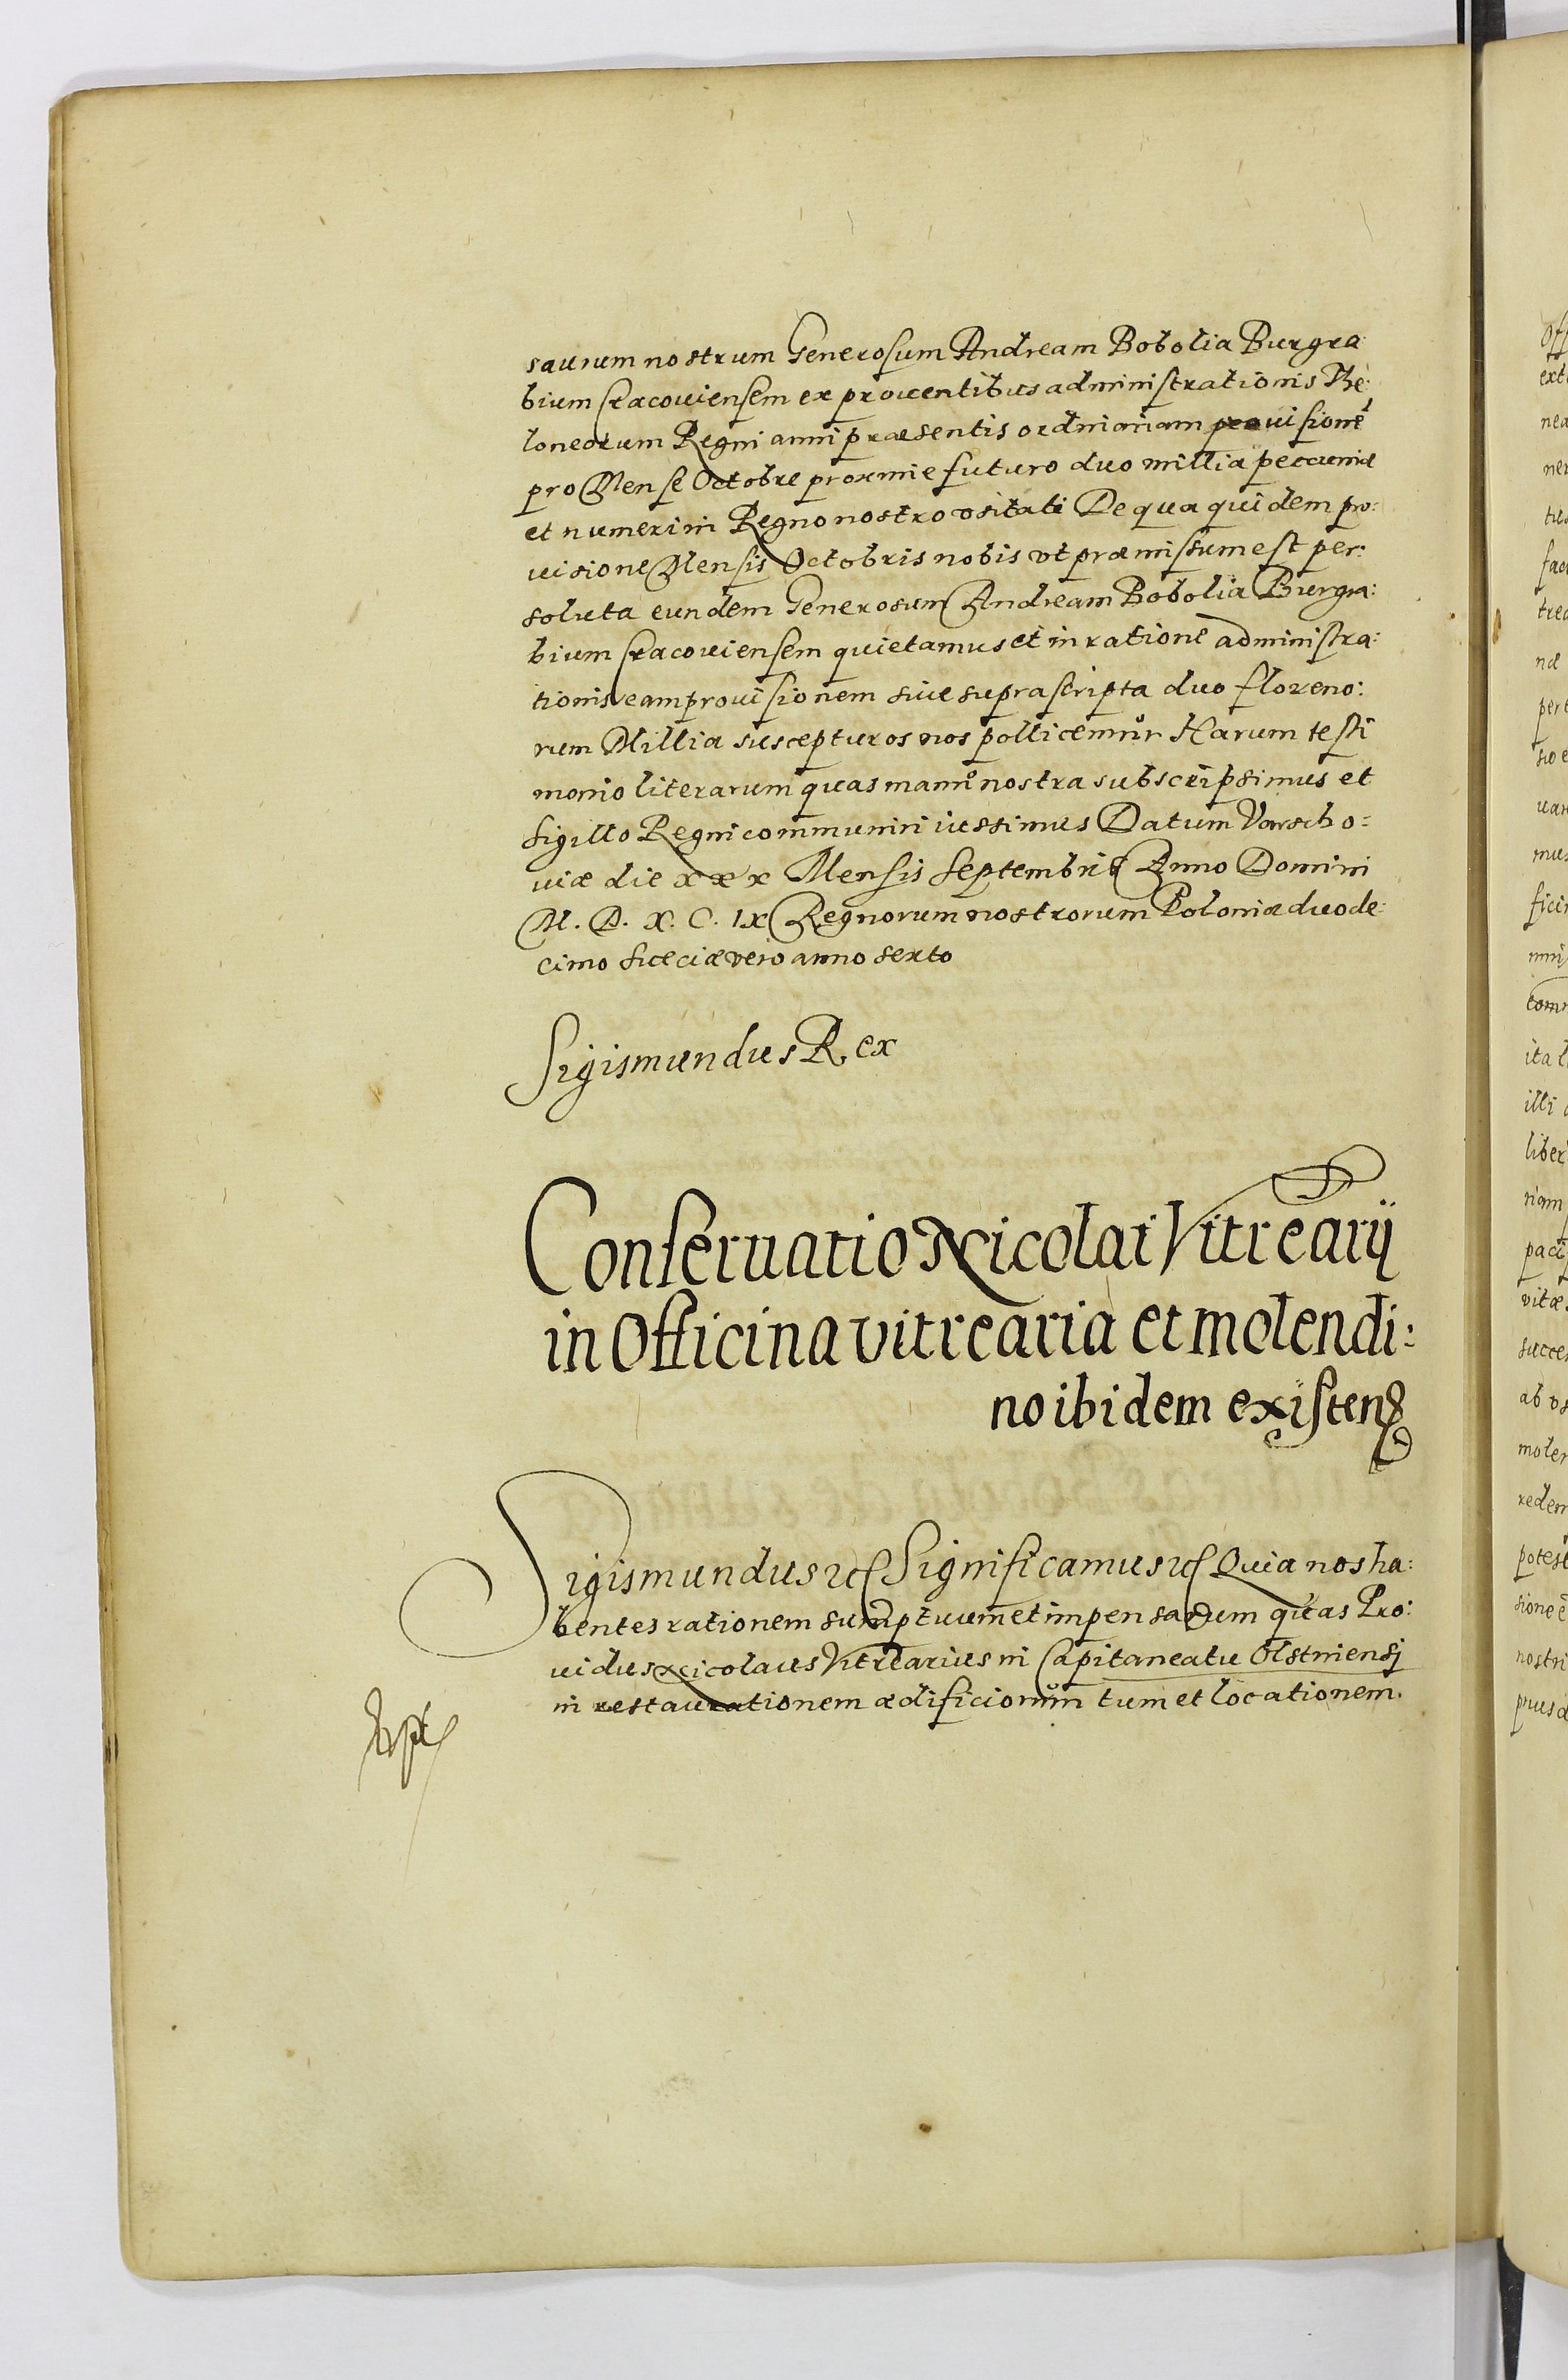 saurum nostrum Generosum Andream Bobolia Burgra
bium Cracouiensem ex prouentibus administrationis The:
loneorum Regni anni præsentis ordinariam prouisionē
pro Mense Octobre proxime futuro duo millia pecuniæ
et numeri in Regno nostro vsitati De qua quidem pro:
uisione Mensis Octobris nobis vt præmissum est per:
soluta eundem Generosum Andream Bobolia Burgra:
bium Cracouiensem quietamus et in ratione administra:
tionis eam prouisionem siue suprascripta duo floreno:
rum Millia suscepturos nos pollicemur Harum testi
monio literarum quas manu nostra subscripsimus et
sigillo Regni communiri iussimus Datum Varscho=
uiæ die xxx Mensis Septembris Anno Domini
M. D. X. C. IX Regnorum nostrorum Poloniæ duode:
cimo Sueciæ vero anno sexto
Sigismundus Rex
Conseruatio Nicolai Vitrearij
in Officina vitrearia et molendi:
no ibidem existen
Sigismundus etc Significamus etc Quia nos ha:
bentes rationem sumptuum et impensarum quas Pro:
uidus Nicolaus Vitrearius in Capitaneatu Olstinensj
in restaurationem ædificiorum tum et locationem.